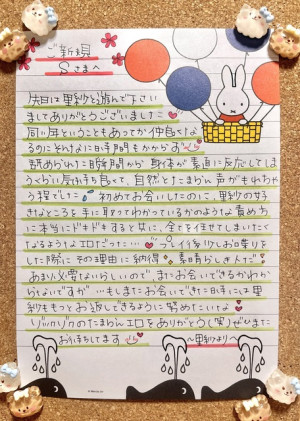 ご新規
Sさまへ
先日は里紗と遊んで下さい
ましてありがとうございました
同い年ということもあってか仲良くな
るのにそんなに時間もかからず
責められた瞬間から身体が素直に反応してしま
うくらい気持ち良くて、自然とたまらん声がもれちゃ
う程でした 初めてお会いしたのに、里紗の好
きなところを手に取って分かっているかのような責めう
に本当にドキドキすると共に、全てを任せてしまいたく
なるようなエロだった…♡ イイ匂りしお口喋りを
した際に その理由に納得 素晴らしきんだ
あまり必要ないらしいので、またお会いできるかわか
らないですが…もしまたお会いできた日には里紗
ももっとお返しできるように努めたいな
ゾックゾクのたまらんエロをありがとう(笑)ぜひまた
お待ちしてます
～里紗より～